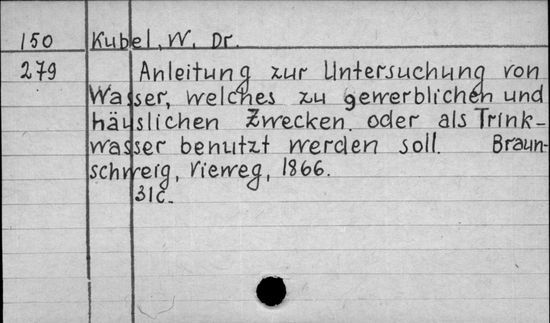 150 Kubel, W. Dr.
279 Anleitung zur Untersuchung von
Wasser, welches zu gewerblichen und
häuslichen Zwecken. oder als Trink-
wasser benutzt werden soll. Braun-
schweig, Vieweg, 1866.
31c.